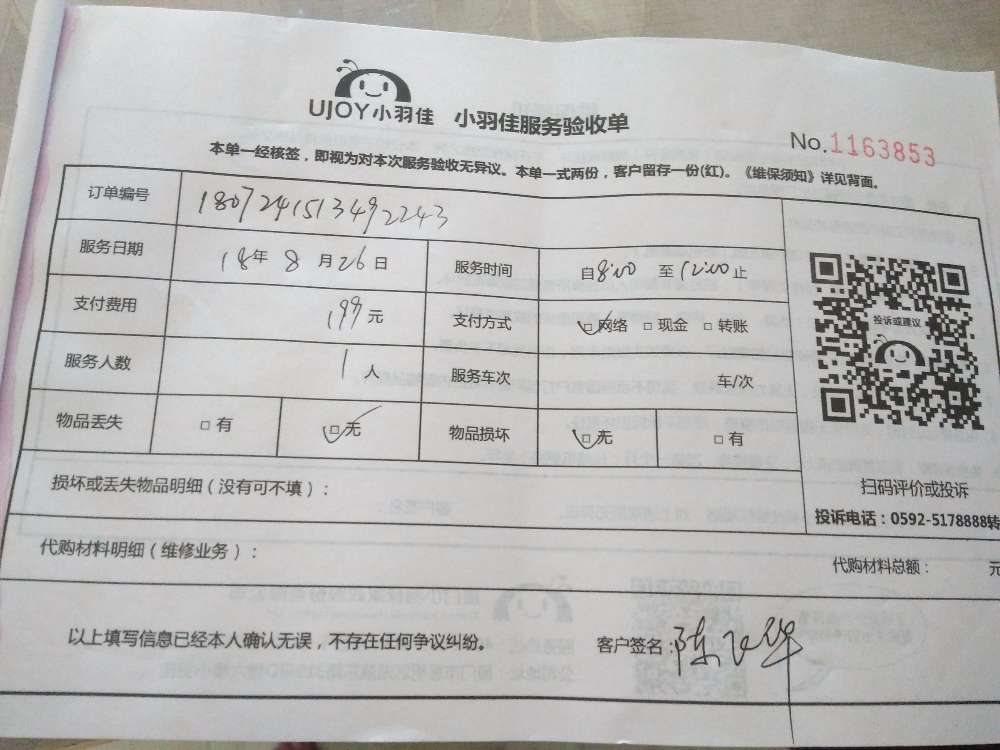 UJOY小羽佳 小羽佳服务验收单
No.1163853
本单一经核签，即视为对本次服务验收无异议。本单一式两份，客户留存一份(红)。《维保须知》详见背面。
订单编号 1807241513492243
服务日期 18年 8 月 26 日 服务时间 自8:00 至 12:00 止
支付费用 199 元 支付方式 □网络 □现金 □转账
服务人数 1 人 服务车次 车/次
物品丢失 □有 □无 物品损坏 □无 □有
投诉或建议
扫码评价或投诉
投诉电话：0592-5178888转
损坏或丢失物品明细（没有可不填）：
代购材料明细（维修业务）： 代购材料总额： 元
以上填写信息已经本人确认无误，不存在任何争议纠纷。 客户签名：陈 华